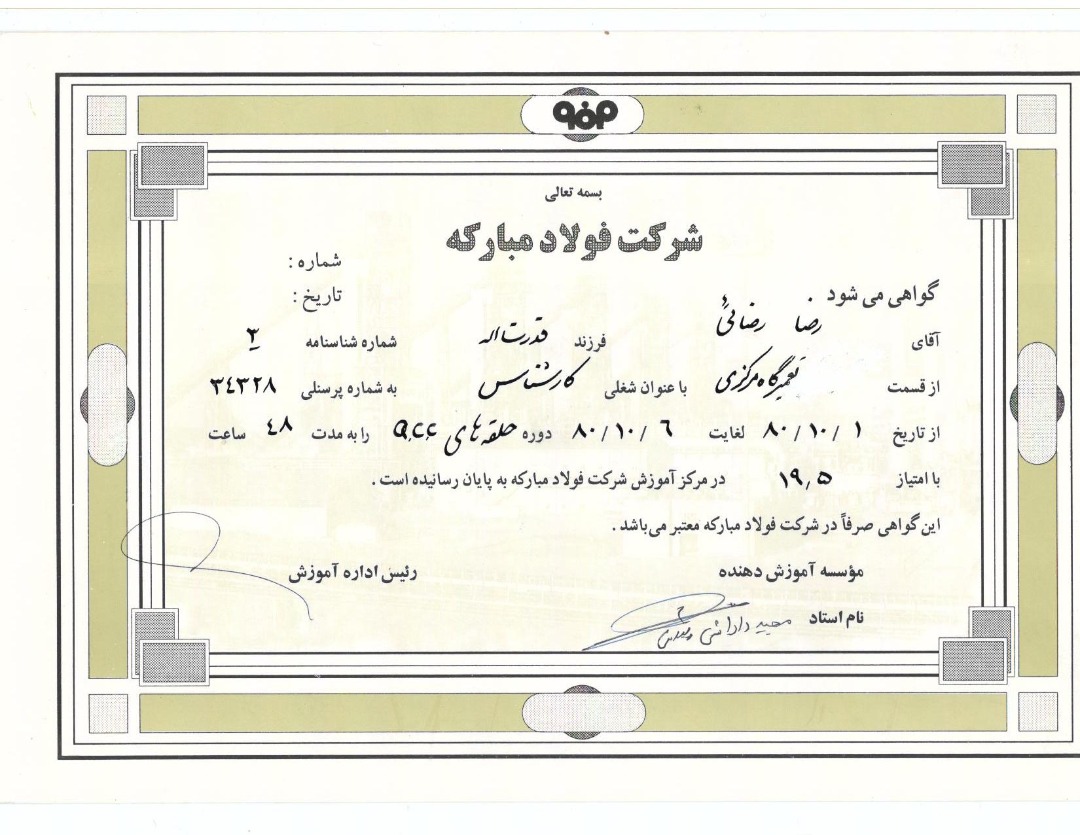 بسمه تعالی
شرکت فولاد مبارکه
شماره :
تاریخ :
گواهی می شود
آقای رضا رضائی فرزند قدرت اله شماره شناسنامه ۳
از قسمت تعمیرگاه مرکزی با عنوان شغلی کارشناس به شماره پرسنلی ۳۴۳۲۸
از تاریخ ۸۰/۱۰/۱ لغایت ۸۰/۱۰/۶ دوره حلقه های Q.C.C را به مدت ۴۸ ساعت
با امتیاز ۱۹٫۵ در مرکز آموزش شرکت فولاد مبارکه به پایان رسانیده است .
این گواهی صرفاً در شرکت فولاد مبارکه معتبر می‌باشد .
مؤسسه آموزش دهنده رئیس اداره آموزش
نام استاد مجید